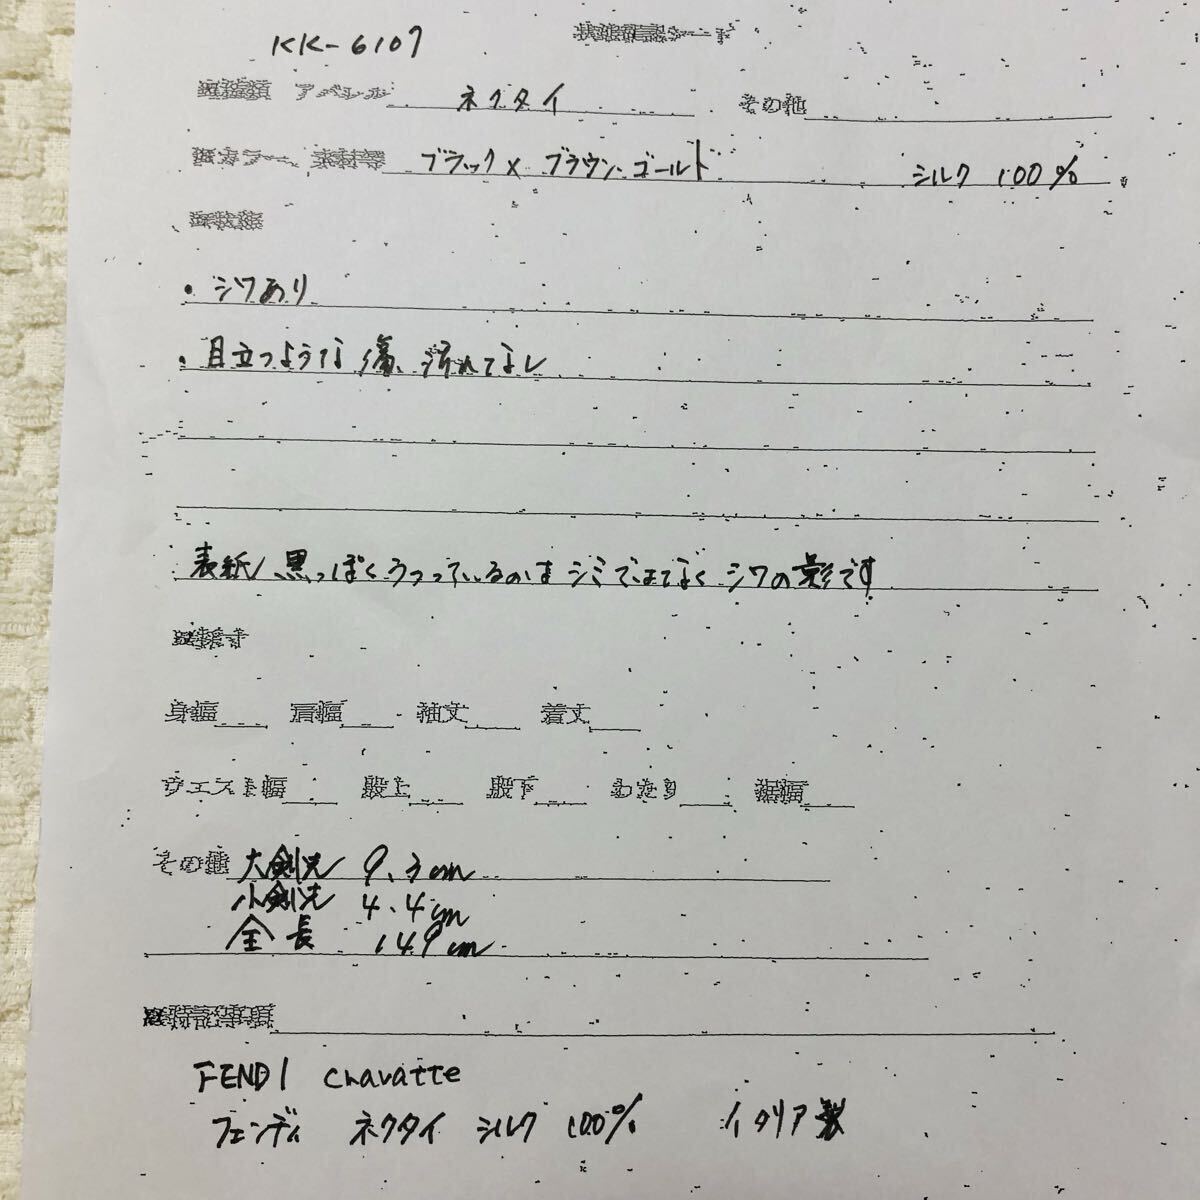 KK-6107
状態確認シート
アパレル ネクタイ その他
カラー、素材等 ブラック×ブラウン.ゴールド シルク 100%
状態
・シワあり
・目立つような傷、汚れてなし
黒っぽくうつっているのはシミではなくシワの影です
採寸
身幅 肩幅 袖丈 着丈
ウエスト幅 股上 股下 わたり 裾幅
その他 大剣先 9.3cm
小剣先 4.4cm
全長 149cm
特記事項
FENDI Cravatte
フェンディ ネクタイ シルク 100% イタリア製